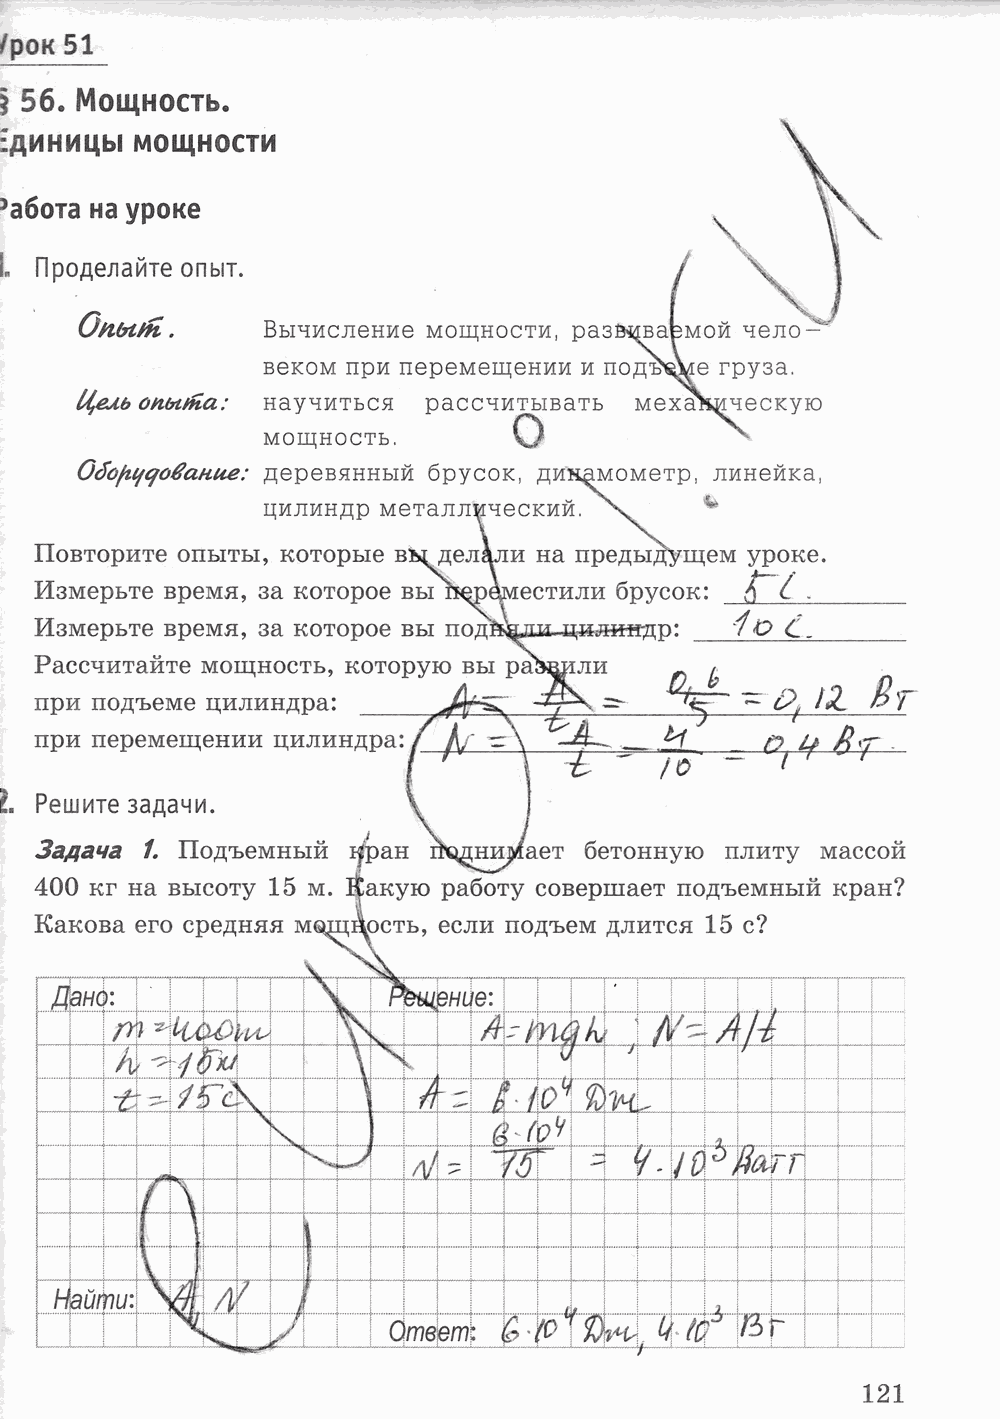 Урок 51
§ 56. Мощность.
Единицы мощности
Работа на уроке
1. Проделайте опыт.
Опыт. Вычисление мощности, развиваемой чело-
веком при перемещении и подъеме груза.
Цель опыта: научиться рассчитывать механическую
мощность.
Оборудование: деревянный брусок, динамометр, линейка,
цилиндр металлический.
Повторите опыты, которые вы делали на предыдущем уроке.
Измерьте время, за которое вы переместили брусок: 5 с.
Измерьте время, за которое вы подняли цилиндр: 10 с.
Рассчитайте мощность, которую вы развили
при подъеме цилиндра: N = A/t = 0,6/5 = 0,12 Вт
при перемещении цилиндра: N = A/t = 4/10 = 0,4 Вт
2. Решите задачи.
Задача 1. Подъемный кран поднимает бетонную плиту массой
400 кг на высоту 15 м. Какую работу совершает подъемный кран?
Какова его средняя мощность, если подъем длится 15 с?
Дано: Решение:
m = 400 A = mgh ; N = A/t
h = 15м
t = 15 с A = 6·10⁴ Дж
N = 6·10⁴/15 = 4·10³ Ватт
Найти: A, N
Ответ: 6·10⁴ Дж, 4·10³ Вт
121